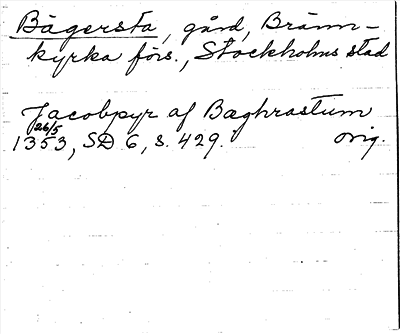 Bägersta, gård, Bränn-
kyrka förs., Stockholms stad
Jacobpyr af Bæghrastum
26/5
1353, SD 6, s. 429. orig.